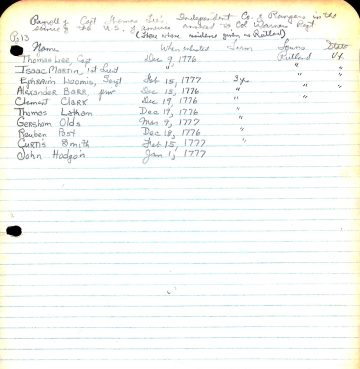 Payroll of Capt Thomas Lee's Independent Co. of Rangers in the
service of the U.S. of America annexed to Col Warners Regt
Pg 13 (those whose residence given as Rutland)
Name When enlisted Term Towns State
Thomas Lee, Capt Dec 9, 1776 Rutland Vt.
Isaac Martin, 1st Lieut " " "
Ephraim Loomis, Sergt Feb 15, 1777 3 yrs " "
Alexander Barr, pvt Dec 15, 1776 " " "
Clement Clark Dec 19, 1776 "
Thomas Latham Dec 17, 1776 "
Gershom Olds Mar 9, 1777 "
Reuben Post Dec 18, 1776 "
Curtis Smith Feb 15, 1777 "
John Hodgs'n Jan 1, 1777